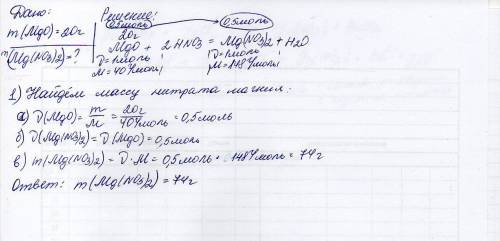 Дано:
m(MgO)=20г
m(Mg(NO3)2)=?
Решение:
0,5моль 0,5моль
20г
MgO + 2HNO3 = Mg(NO3)2 + H2O
ν=1моль ν=1моль
M=40г/моль M=148г/моль
1) Найдём массу нитрата магния:
а) ν(MgO)=m/M=20г/40г/моль=0,5моль
б) ν(Mg(NO3)2)=ν(MgO)=0,5моль
в) m(Mg(NO3)2)=ν·M=0,5моль·148г/моль=74г
Ответ: m(Mg(NO3)2)=74г